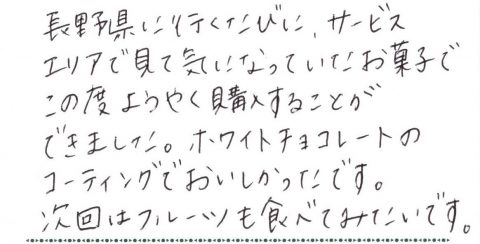 長野県に行くたびに、サービス
エリアで見て気になっていたお菓子で
この度ようやく購入することが
できました。ホワイトチョコレートの
コーティングでおいしかったです。
次回はフルーツも食べてみたいです。